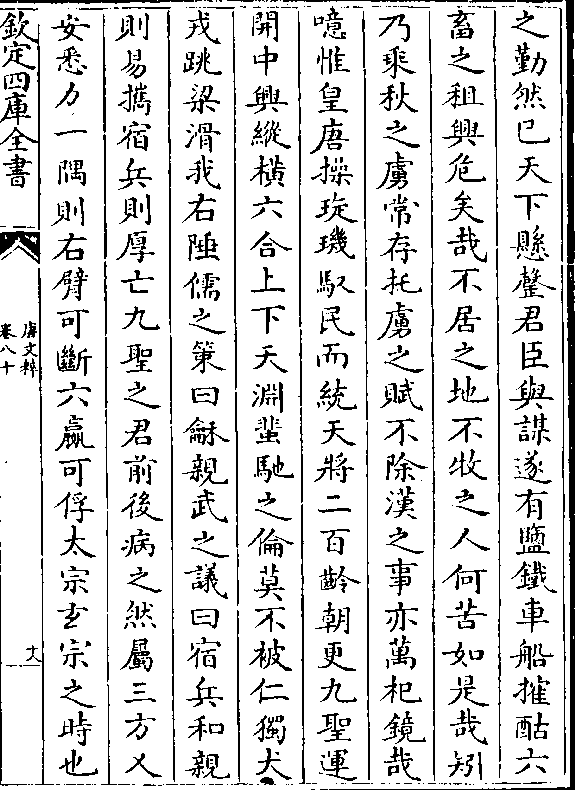 之勤然已天下懸罄君臣與謀遂有鹽鐵車船搉酤六
畜之租興危矣哉不居之地不牧之人何苦如是哉矧
乃乘秋之虜常存托虜之賦不除漢之事亦萬祀鏡哉
噫惟皇唐操琁璣馭民而統天將二百齡朝更九聖運
開中興縱橫六合上下天淵蜚馳之倫莫不被仁獨犬
戎跳梁滑我右陲儒之策曰龢親武之議曰宿兵和親
則易攜宿兵則厚亡九聖之君前後病之然屬三方乂
安悉力一隅則右臂可斷六蠃可俘太宗玄宗之時也
欽定四庫全書
唐文粹
卷八十